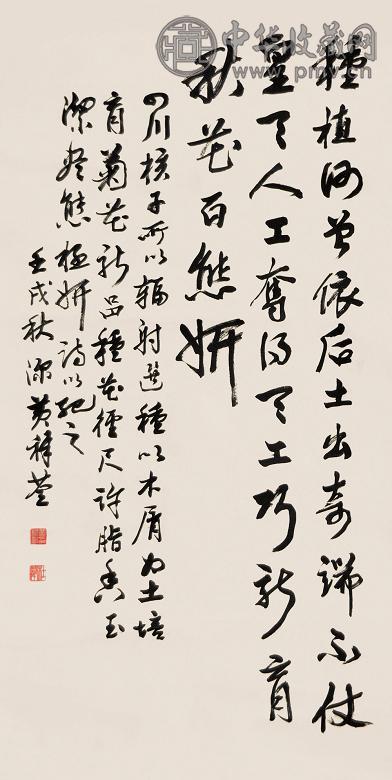 中华收藏网
www.pmv.cn
種植何曾依后土出奇端不仗
皇天人工奪得天工巧新育
秋花百態妍
四川核子所以輻射選種以木屑为土培
育菊花新品種花徑尺許脂香玉
潔盡態極妍詩以紀之
壬戌秋深黄稚荃